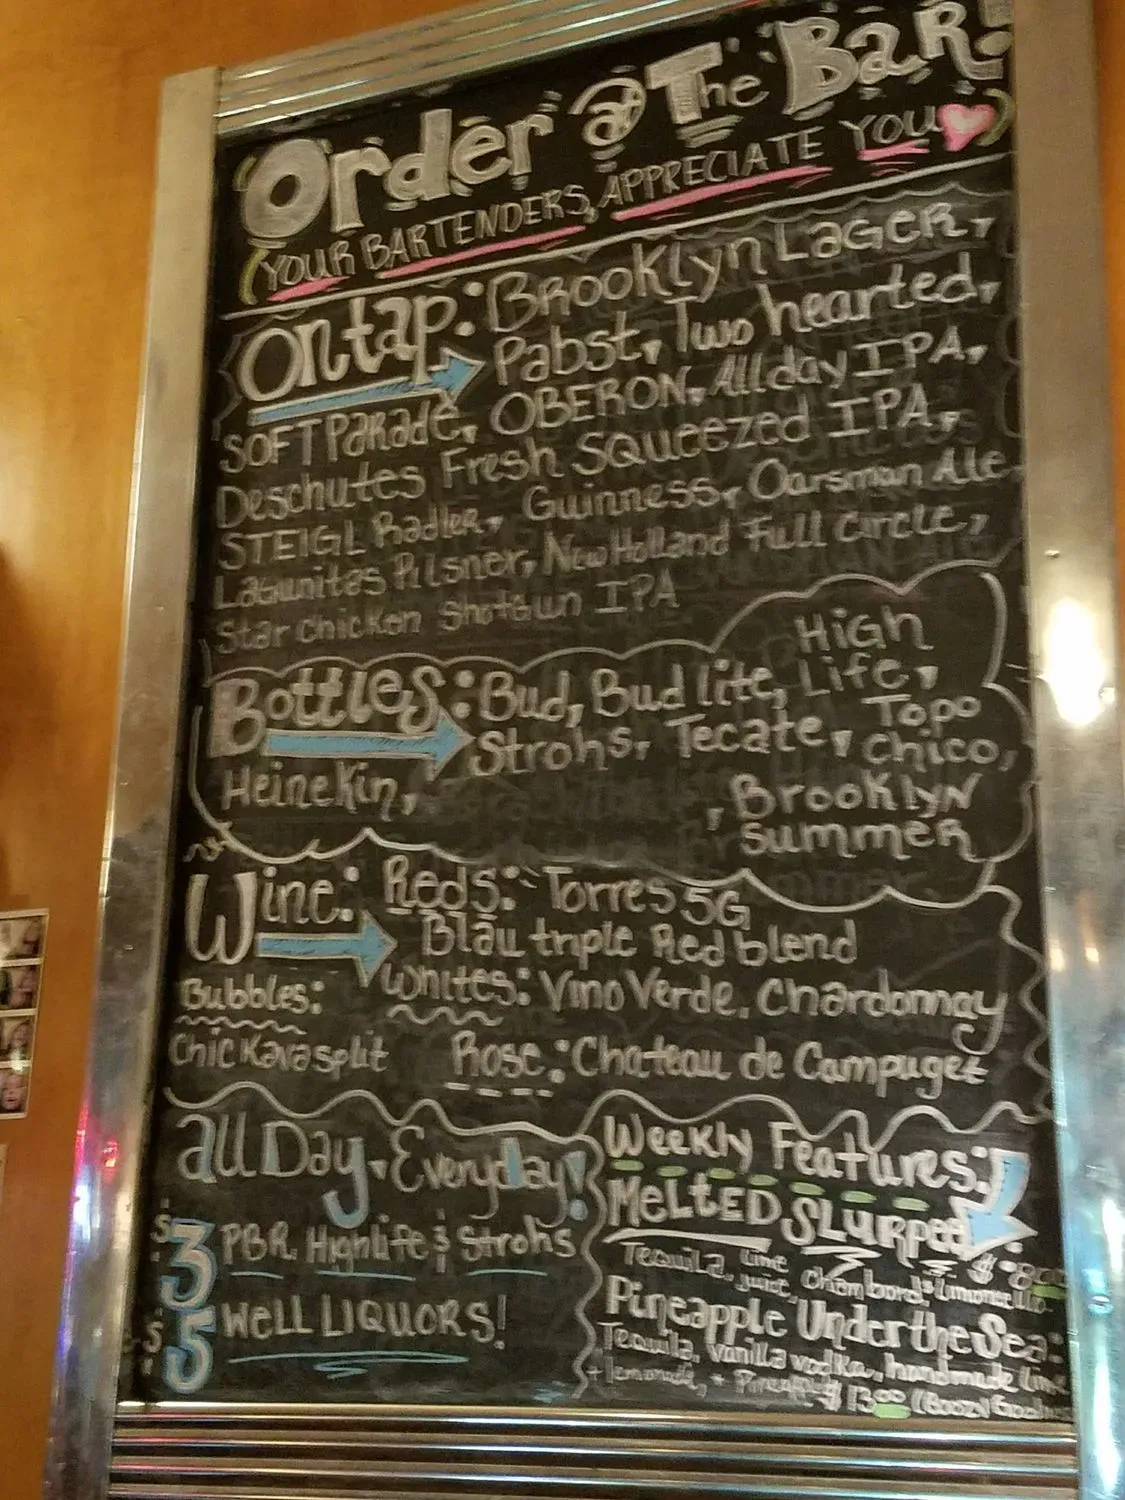 Order @ The Bar!
(Your Bartenders, Appreciate You)
On tap: Brooklyn Lager,
Pabst, Two hearted,
Soft Parade, OBERON, All day IPA,
Deschutes Fresh Squeezed IPA,
STEIGL Radler, Guinness, Oarsman Ale
Lagunitas Pilsner, New Holland Full Circle,
Star chicken Shotgun IPA
Bottles: Bud, Bud lite, High Life,
Strohs, Tecate, Topo chico,
Heinekin, , Brooklyn Summer
Wine: Reds: Torres 5G
Blau triple Red blend
Bubbles: Whites: Vino Verde, Chardonnay
Chic Kava split Rose: Chateau de Campuget
all Day, Everyday!
$3 PBR, Highlife & Strohs
$5 Well Liquors!
Weekly Features:
Melted Slurpee:
Tequila, lime juice, Chambord, limoncello $8.00
Pineapple Under the Sea:
Tequila, vanilla vodka, handmade lime
+ lemonade, + Pineapple $13.00 (Boozy